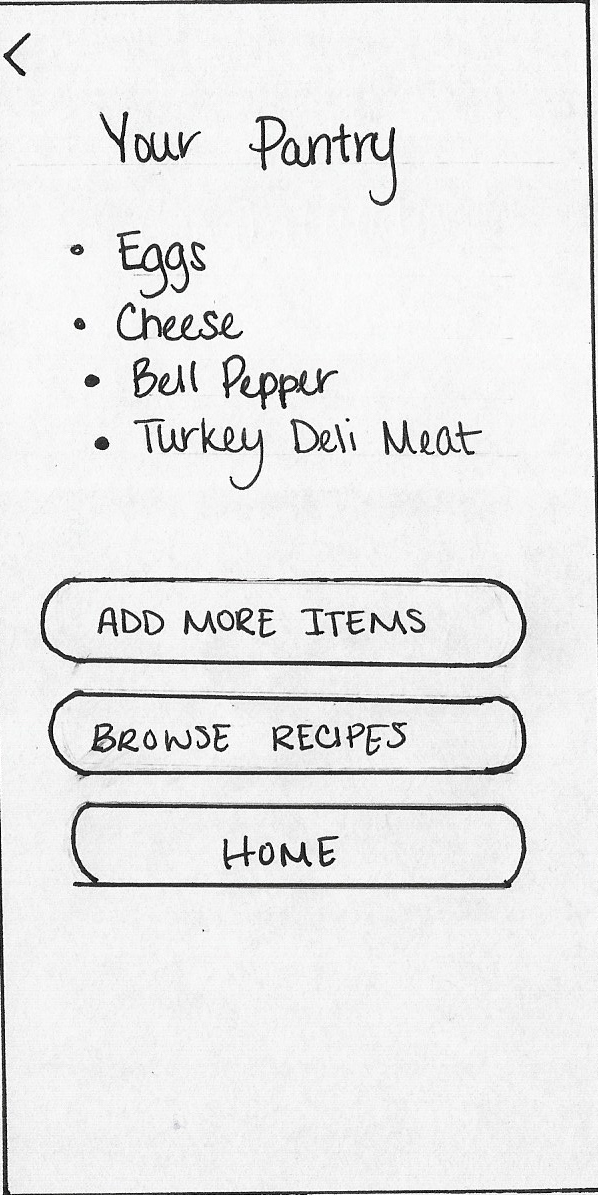 <
Your Pantry
• Eggs
• Cheese
• Bell Pepper
• Turkey Deli Meat
ADD MORE ITEMS
BROWSE RECIPES
HOME